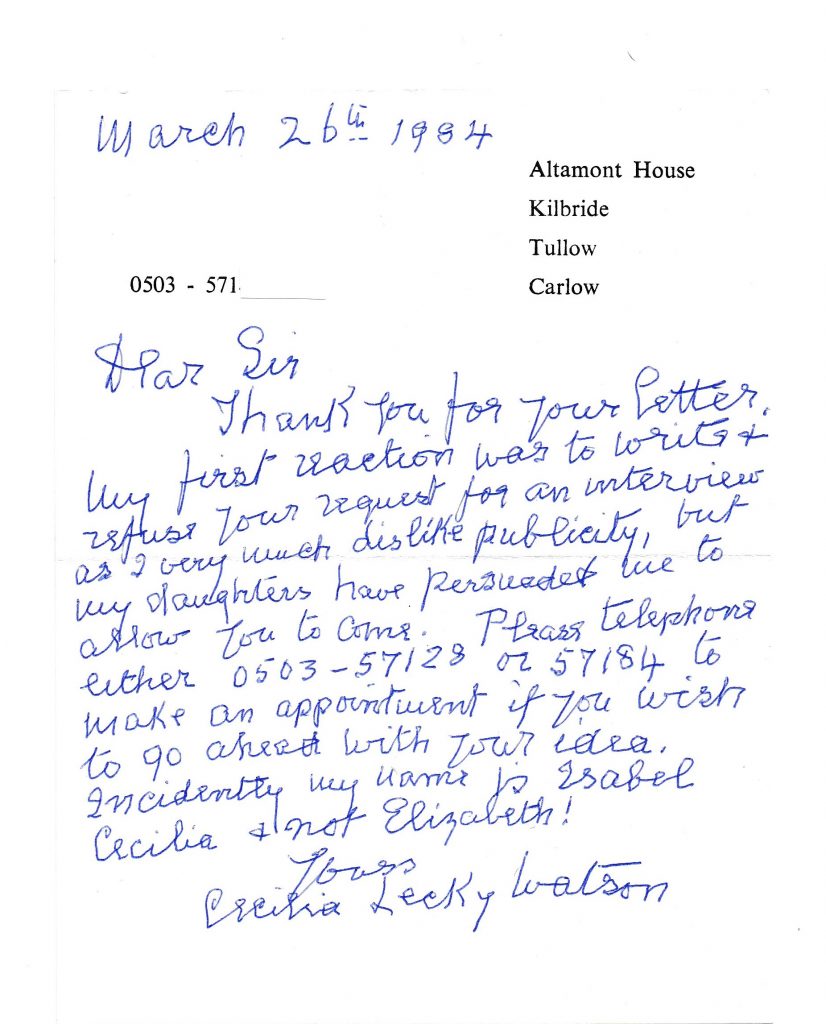 March 26th 1984
Altamont House
Kilbride
Tullow
0503 - 571
Carlow
Dear Sir
Thank you for your letter.
My first reaction was to write &
refuse your request for an interview
as I very much dislike publicity, but
my daughters have persuaded me to
allow you to come. Please telephone
either 0503-57128 or 57184 to
make an appointment if you wish
to go ahead with your idea.
Incidently my name is Isabel
Cecilia & not Elizabeth!
Yours
Cecilia Lecky Watson